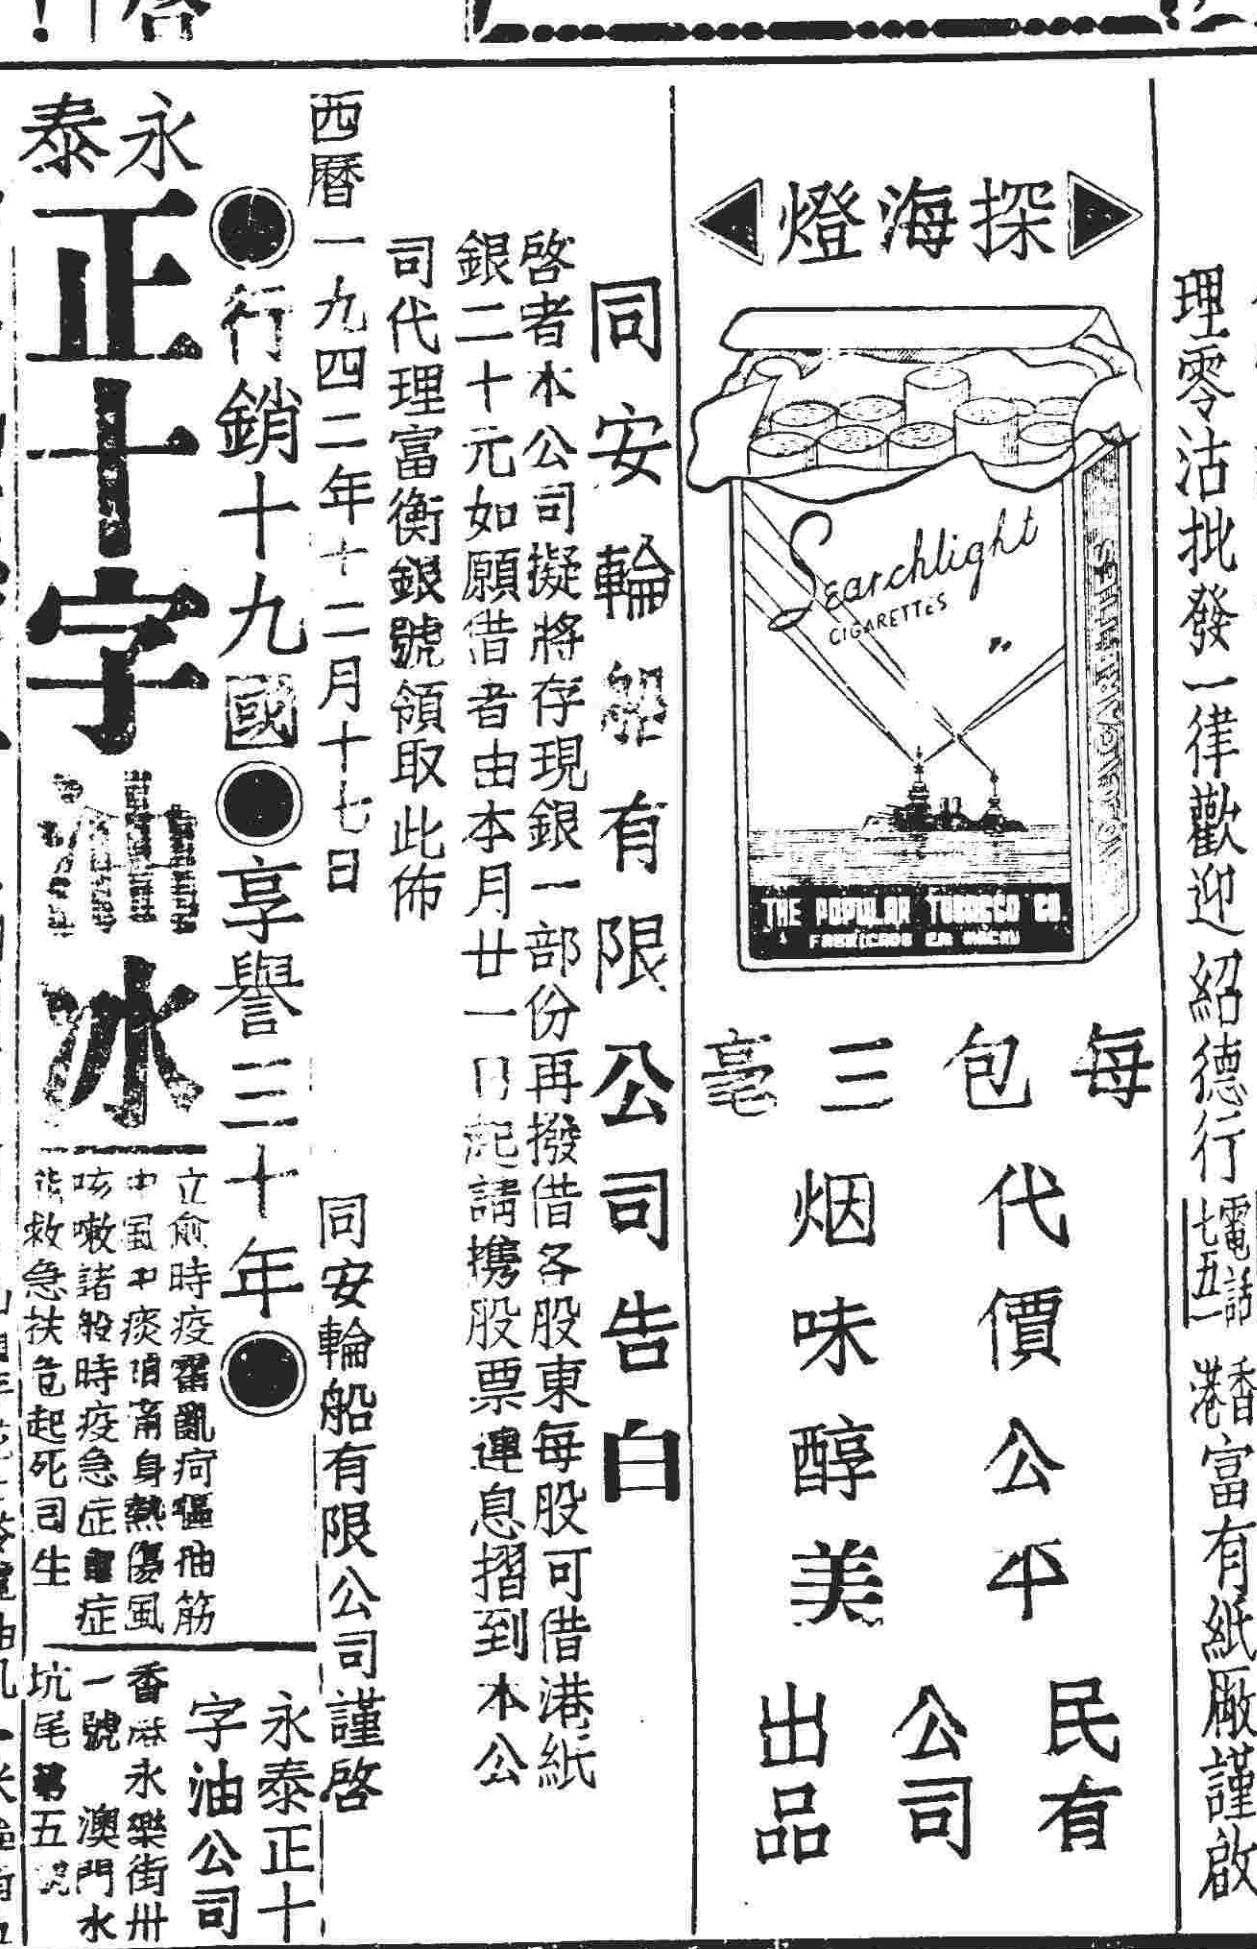 理零沽批發一律歡迎 紹德行
電話
七五一
香港
富有紙厰謹啟
探海燈
Searchlight
CIGARETTES
THE POPULAR TOBACCO CO.
FABRICADO EM MACAU
每包三毫
代價公平
烟味醇美
民有公司出品
同安輪船有限公司告白
啓者本公司擬將存現銀一部份再撥借各股東每股可借港紙
銀二十元如願借者由本月廿一日起請携股票連息摺到本公
司代理富衡銀號領取此佈
西曆一九四二年十二月十七日
同安輪船有限公司謹啓
●行銷十九國●享譽三十年●
永泰
正十字油冰
立愈時疫霍亂疴嘔抽筋
中風中痰頭痛身熱傷風
咳嗽諸般時疫急症重症
能救急扶危起死回生
永泰正十
字油公司
香港永樂街卅
一號 澳門水
坑尾第五號